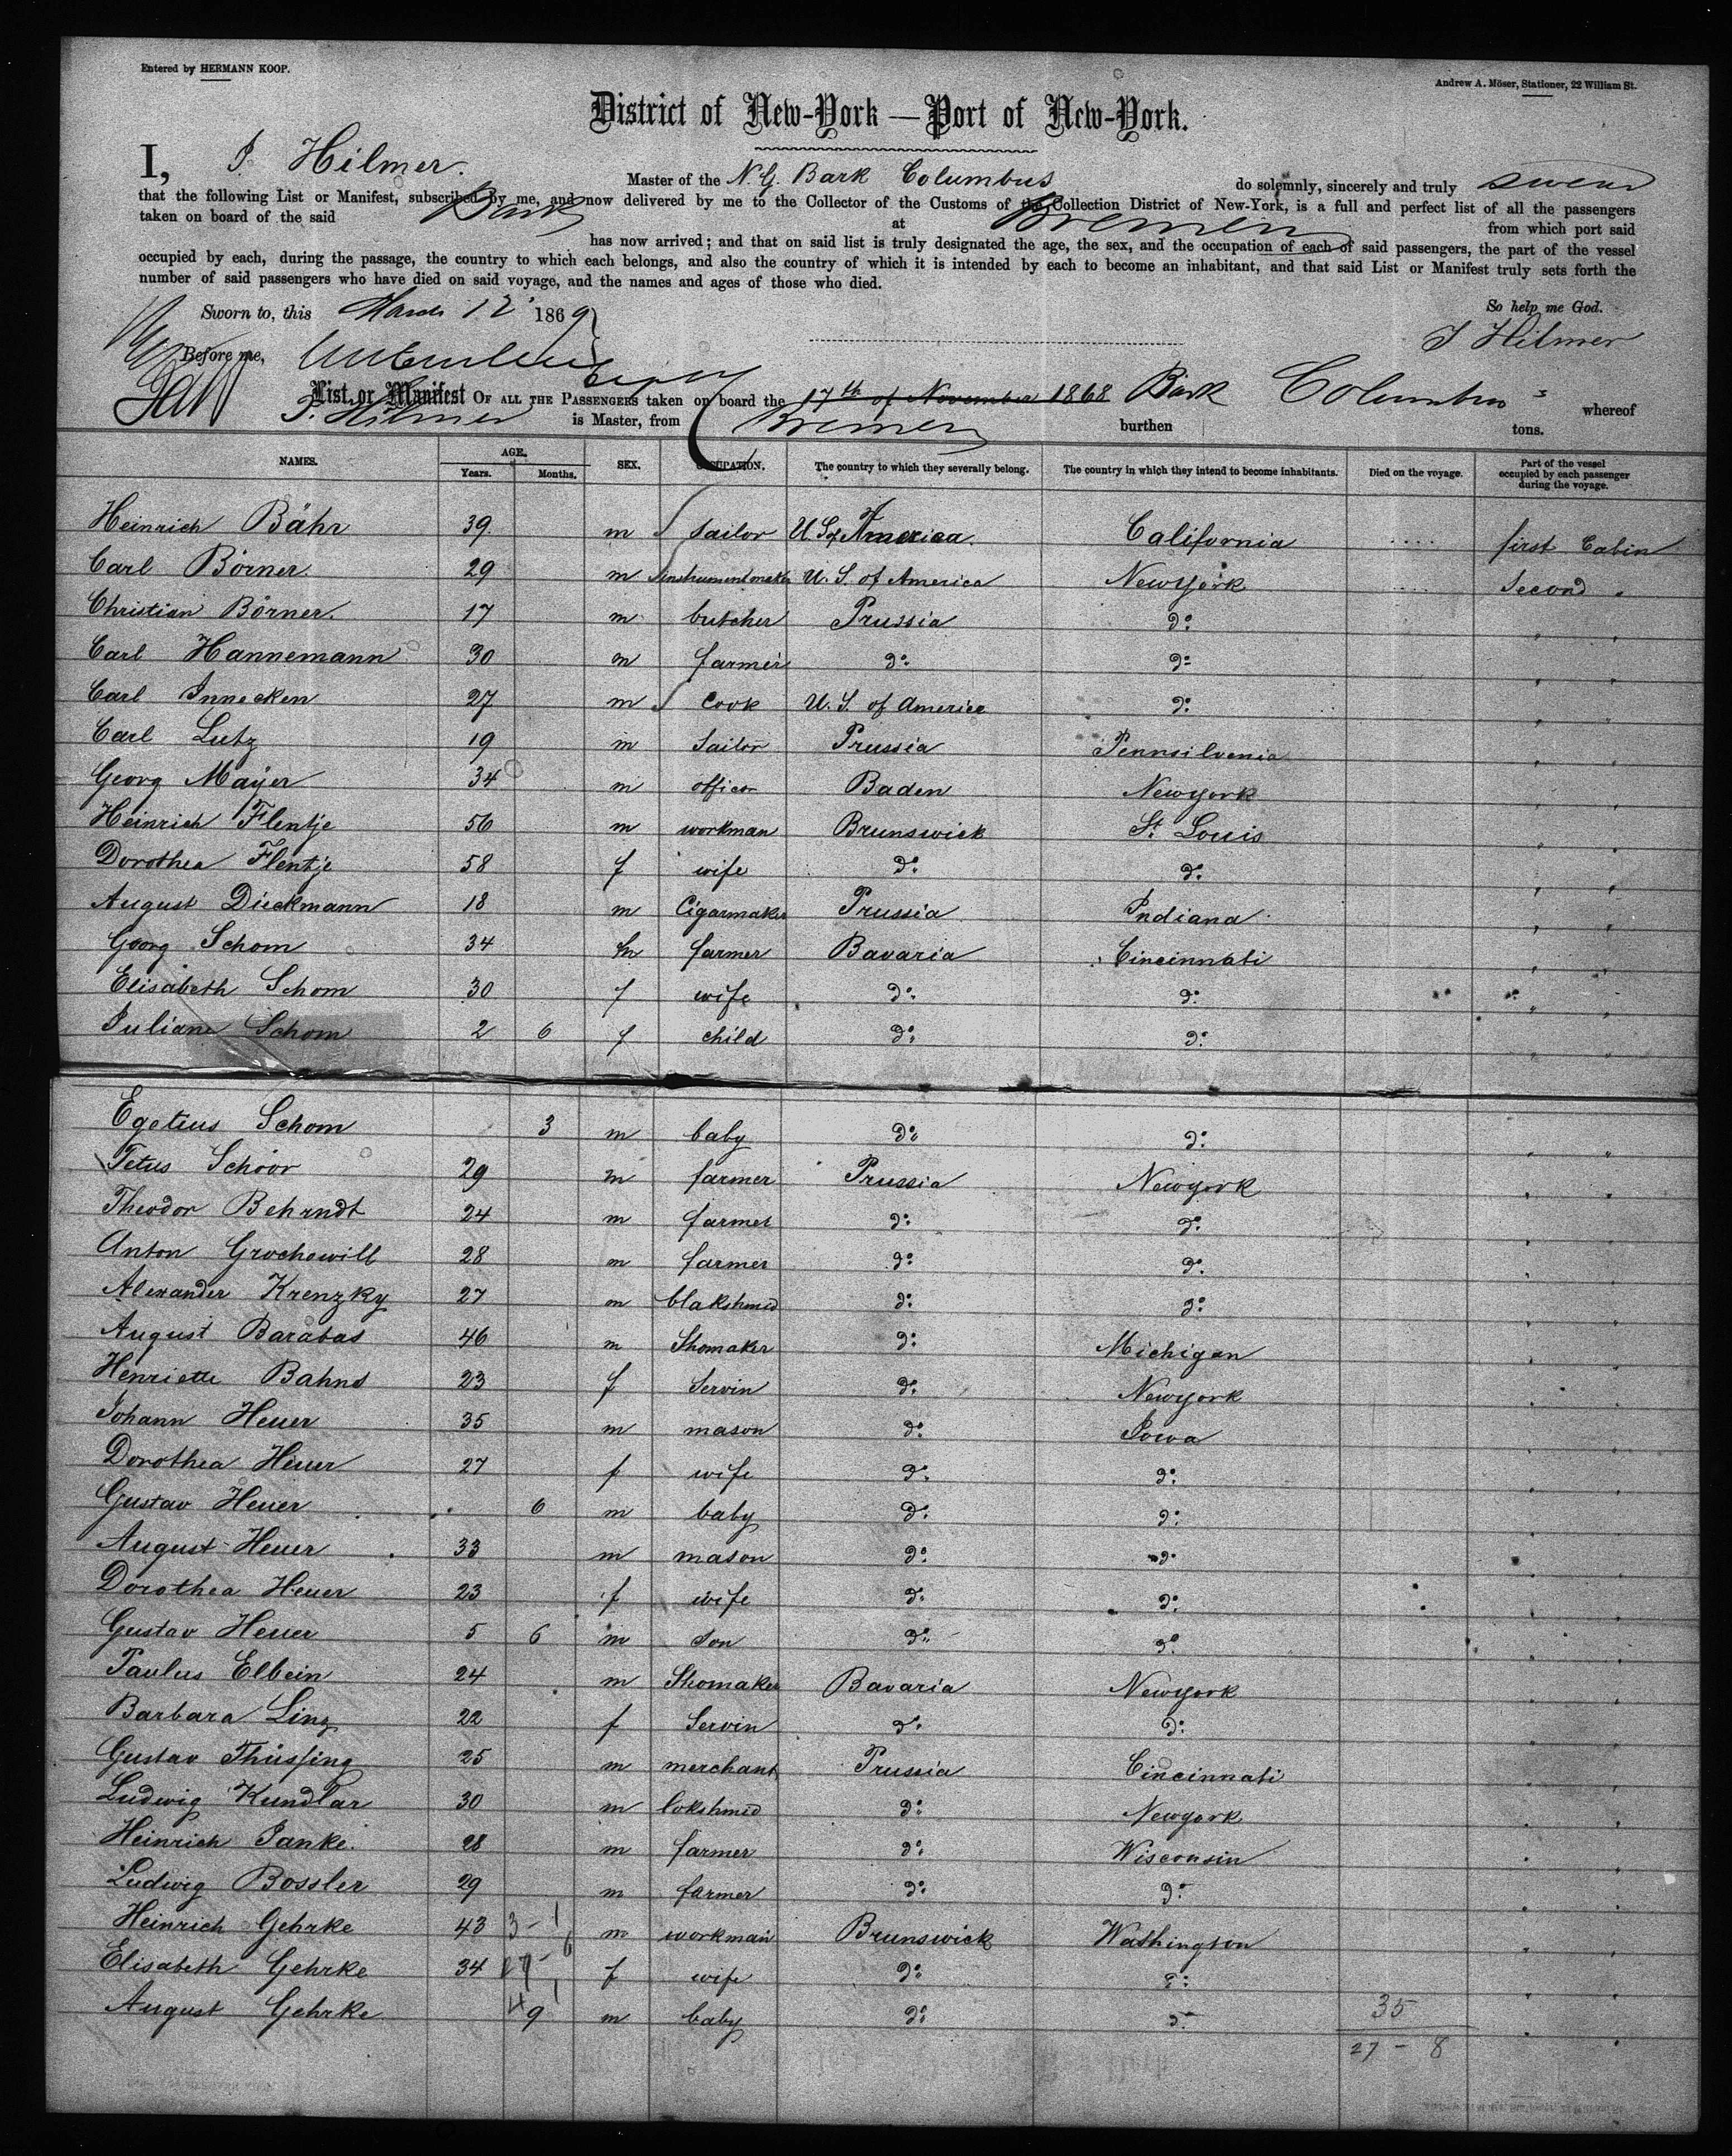 Entered by HERMANN KOOP.
Andrew A. Möser, Stationer, 22 William St.
District of New-York — Port of New-York.
I, J. Hilmer. Master of the N. G. Bark Columbus do solemnly, sincerely and truly swear
that the following List or Manifest, subscribed by me, and now delivered by me to the Collector of the Customs of the Collection District of New-York, is a full and perfect list of all the passengers
taken on board of the said Bark at Bremen from which port said
has now arrived; and that on said list is truly designated the age, the sex, and the occupation of each of said passengers, the part of the vessel
occupied by each, during the passage, the country to which each belongs, and also the country of which it is intended by each to become an inhabitant, and that said List or Manifest truly sets forth the
number of said passengers who have died on said voyage, and the names and ages of those who died.
Sworn to, this March 12 1869 So help me God.
J Hilmer
Before me,
List or Manifest OF ALL THE PASSENGERS taken on board the 17th of November 1868 Bark Columbus whereof
J. Hilmer is Master, from Bremen burthen tons.
NAMES. AGE. Years. Months. SEX. OCCUPATION. The country to which they severally belong. The country in which they intend to become inhabitants. Died on the voyage. Part of the vessel occupied by each passenger during the voyage.
Heinrich Bähr 39. m sailor U. S. of America. California .... first Cabin
Carl Börner. 29 m instrumentmaker U. S. of America Newyork .... Second "
Christian Börner. 17 m butcher Prussia do " "
Carl Hannemann 30 m farmer do do " "
Carl Innecken 27 m Cook U. S. of America do " "
Carl Lutz 19 m Sailor Prussia Pennsilvenia " "
Georg Mayer 34 m officer Baden Newyork " "
Heinrich Flentje 56 m workman Brunswick St. Louis " "
Dorothea Flentje 58 f wife do do " "
August Dieckmann 18 m Cigarmaker Prussia Indiana " "
Georg Schom 34 m farmer Bavaria Cincinnati " "
Elisabeth Schom 30 f wife do do " "
Juliane Schom 2 6 f child do do " "
Egetius Schom 3 m baby do do " "
Tetus Schöor 29 m farmer Prussia Newyork " "
Theodor Behrndt 24 m farmer do do " "
Anton Grochowill 28 m farmer do do " "
Alexander Krenzky 27 m blakshmid do do " "
August Barabas 46 m Shomaker do Michigan " "
Henriette Bahns 23 f Servin do Newyork " "
Johann Heuer 35 m mason do Iowa " "
Dorothea Heuer 27 f wife do do " "
Gustav Heuer 6 m baby do do " "
August Heuer 33 m mason do do " "
Dorothea Heuer 23 f wife do do " "
Gustav Heuer 5 6 m son do do " "
Paulus Elbein 24 m Shomaker Bavaria Newyork " "
Barbara Ling 22 f Servin do do " "
Gustav Thüssing 25 m merchant Prussia Cincinnati " "
Ludwig Kundlar 30 m lokshmid do Newyork " "
Heinrich Janke. 28 m farmer do Wisconsin " "
Ludwig Bossler 29 m farmer do do " "
Heinrich Gehrke 43 m workman Brunswick Washington " "
Elisabeth Gehrke 34 f wife do do " "
August Gehrke 9 m baby do do 35 " "
27 - 8